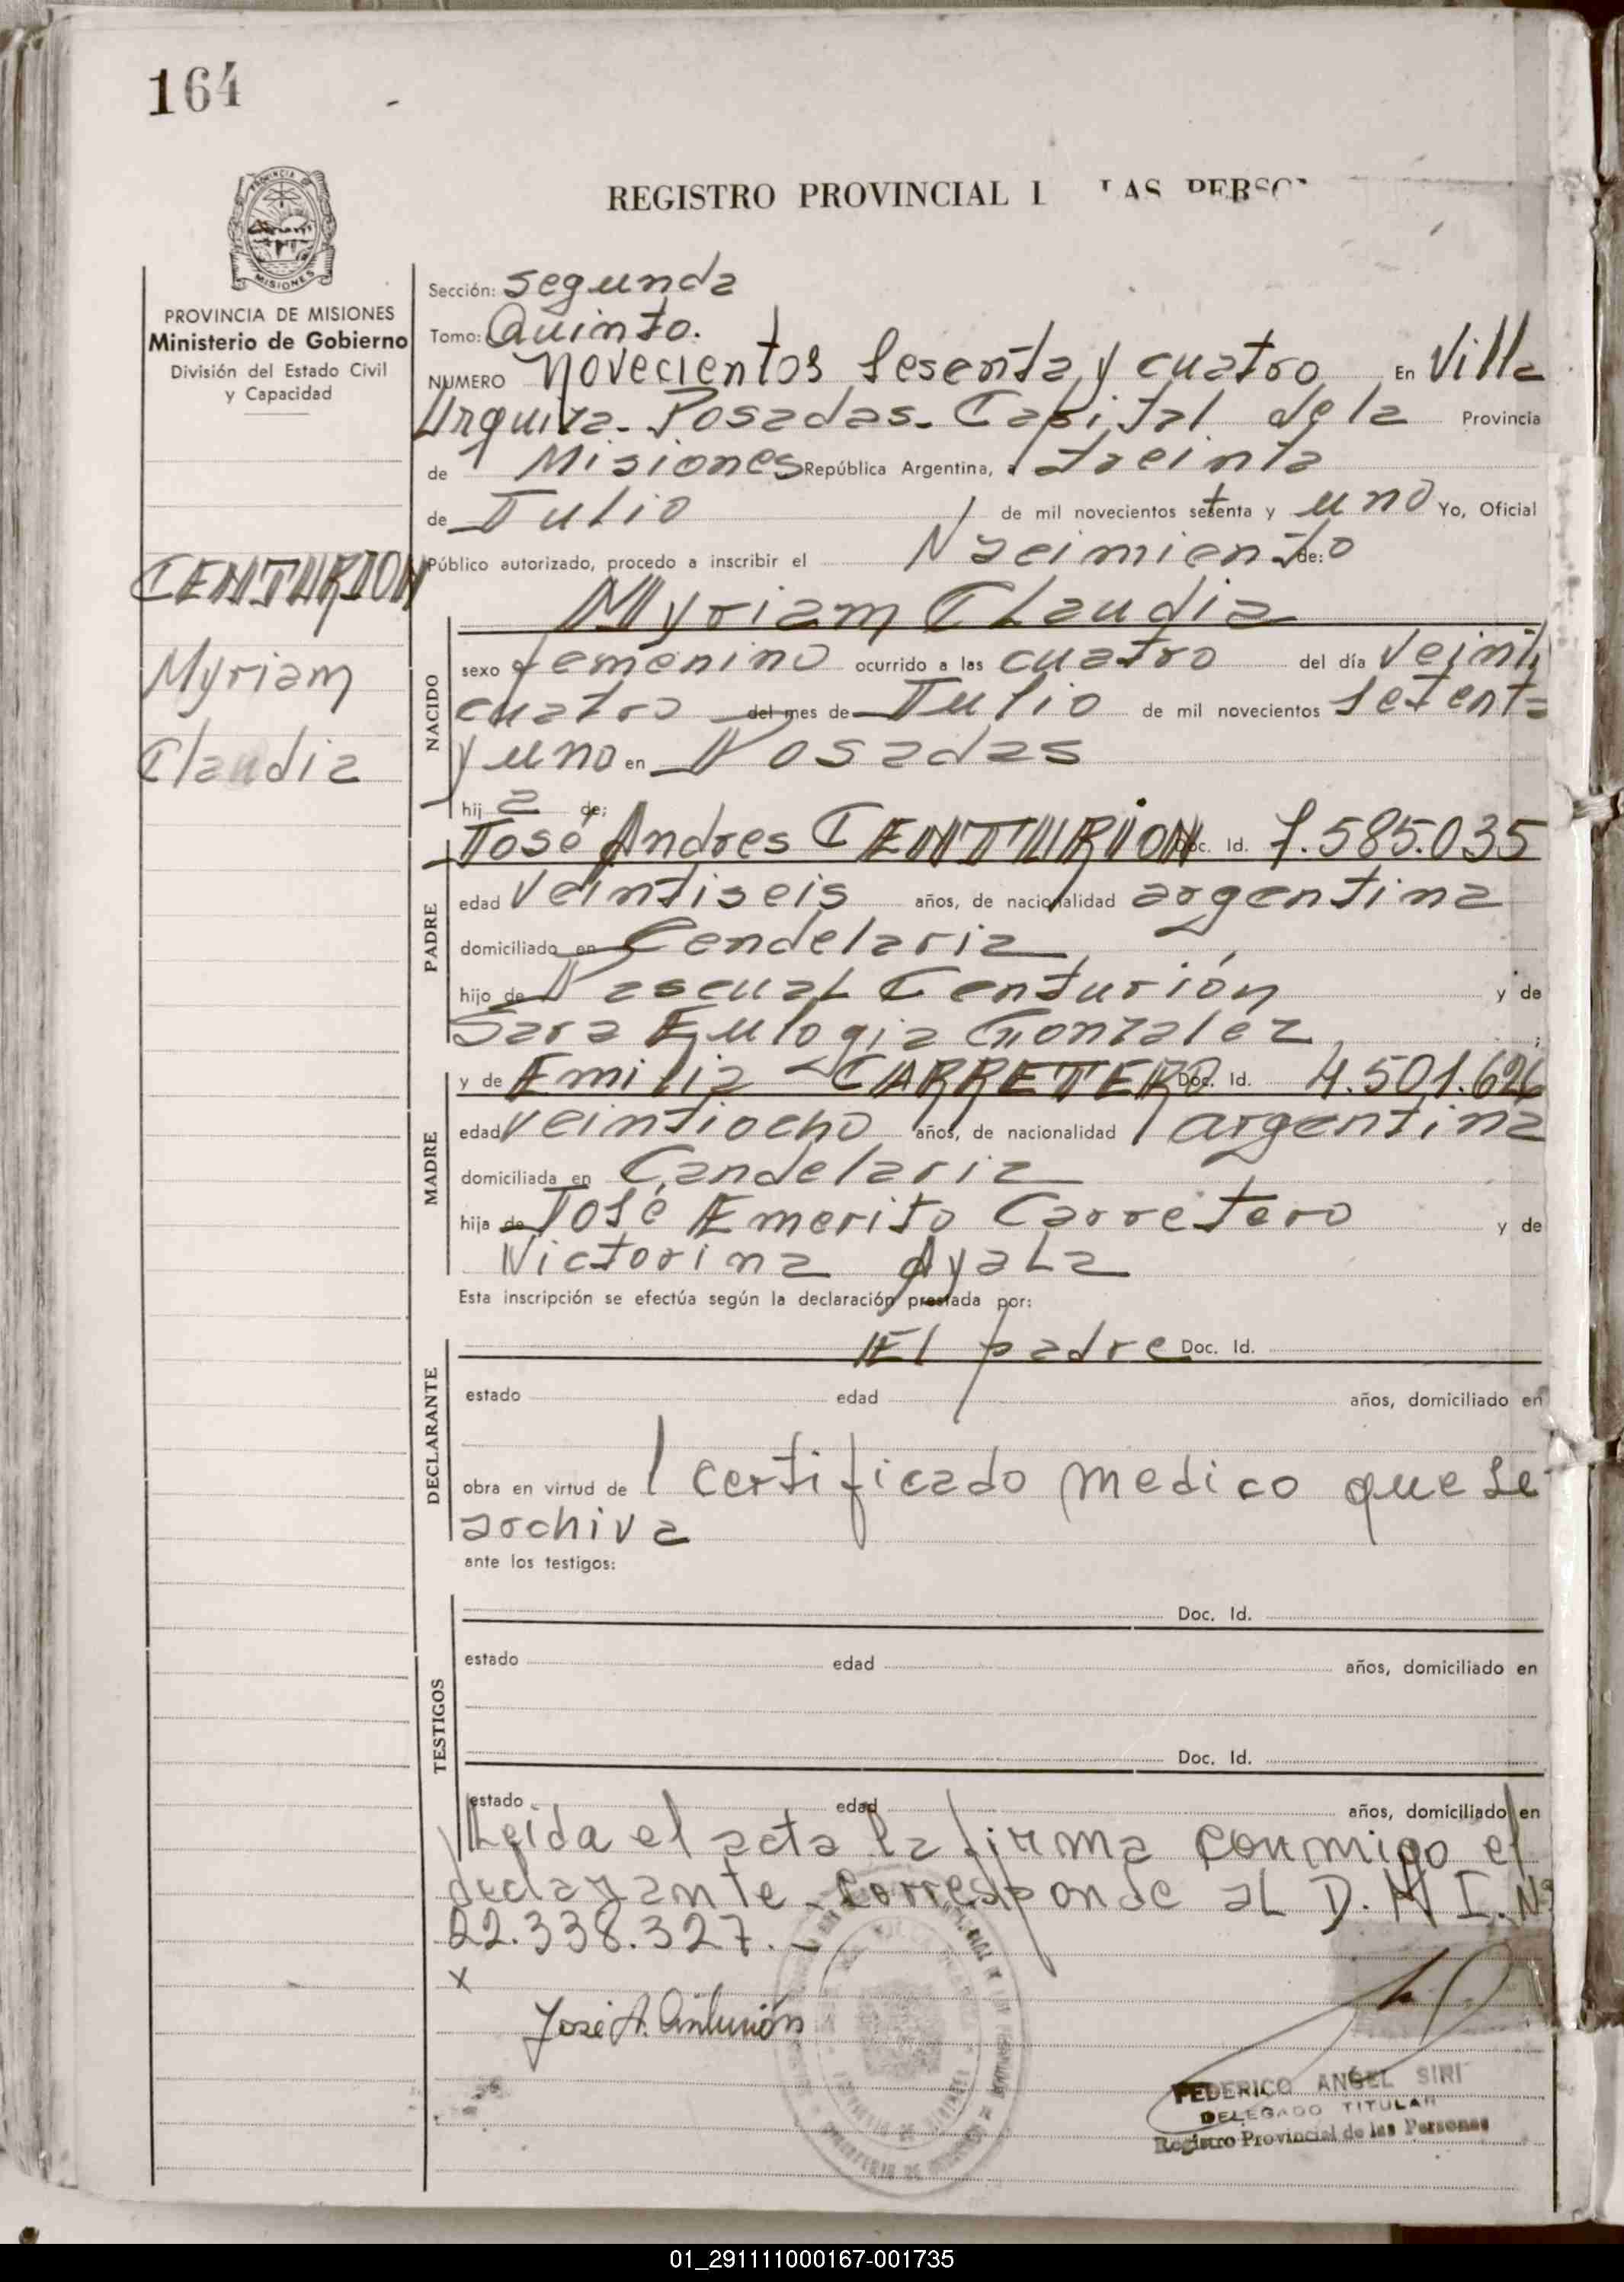 164
REGISTRO PROVINCIAL LAS PERSO
PROVINCIA DE MISIONES
Ministerio de Gobierno
División del Estado Civil
y Capacidad
CENTURION
Myriam
Claudia
Sección: Segunda
Tomo: Quinto.
NUMERO Novecientos Sesenta y cuatro En Villa
Urquiza - Posadas - Capital de la Provincia
de Misiones República Argentina, a treinta
de Julio de mil novecientos setenta y uno Yo, Oficial
Público autorizado, procedo a inscribir el Nacimiento de:
Myriam Claudia
NACIDO
sexo femenino ocurrido a las cuatro del día Veinti
cuatro del mes de Julio de mil novecientos Setenta
y uno en Posadas
hij a de:
PADRE
José Andres CENTURION Doc. Id. 7.585.035
edad Veintiseis años, de nacionalidad argentina
domiciliado en Candelaria
hijo de Pascual Centurión y de
Sara Eulogia Gonzalez ;
MADRE
y de Emilia CARRETERO Doc. Id. 4.501.626
edad veintiocho años, de nacionalidad argentina
domiciliada en Candelaria
hija de José Emerito Carretero y de
Victorina Ayala
Esta inscripción se efectúa según la declaración prestada por:
DECLARANTE
El padre Doc. Id.
estado edad años, domiciliado en
obra en virtud de certificado medico que se
archiva
ante los testigos:
TESTIGOS
Doc. Id.
estado edad años, domiciliado en
Doc. Id.
estado edad años, domiciliado en
Leida el acta la firma conmigo el
declarante - Corresponde al D.N.I. Nº
22.338.327. -
x
José A. Centurión
FEDERICO ANGEL SIRI
DELEGADO TITULAR
Registro Provincial de las Personas
01_291111000167-001735